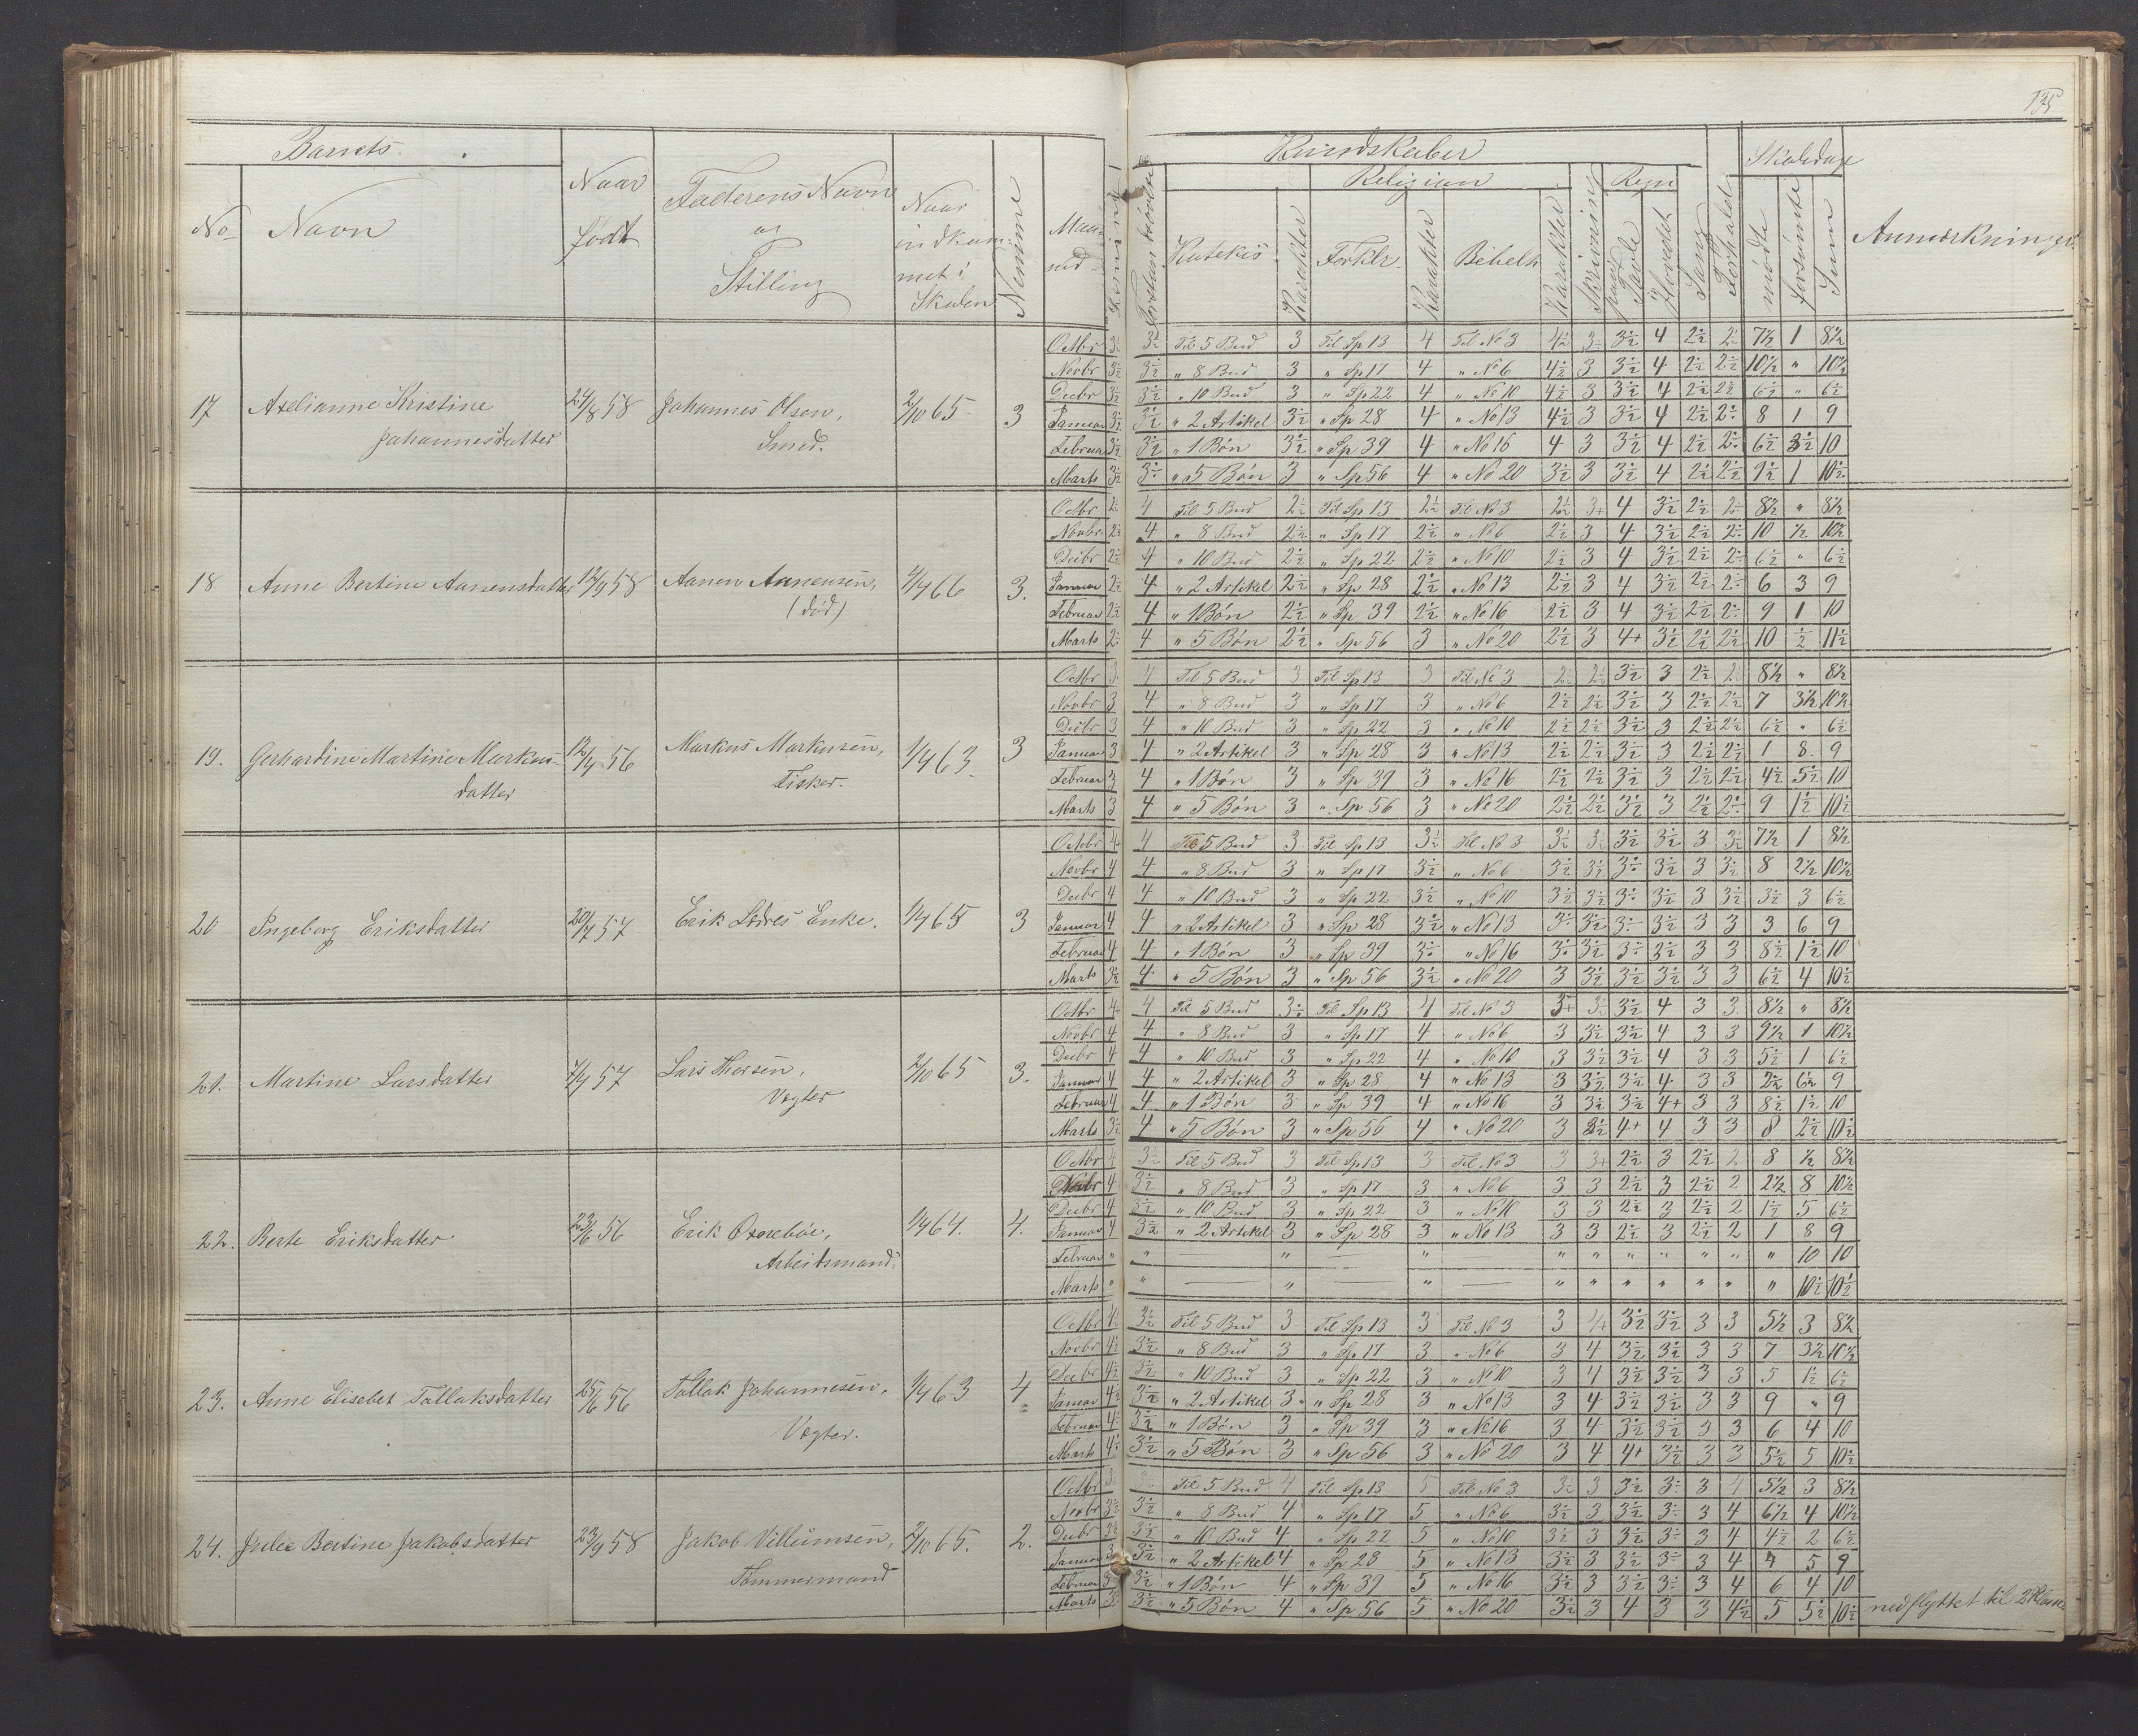 135
Barnets
Naar født
Faderens Navn og Stilling
Naar indkommet i Skolen
Nemme
Maaned
Kundskaber
Religion
Regn
Skoledage
No
Navn
Katekis
Karakter
Forklr
Karakter
Bibelh
Karakter
Skrivning
paa Tavle
i Hovedet
Sang
Forhold
mødte
forsømte
Sum
Anmærkninger
17 Axelianne Kristine Johannesdatter 24/8 58 Johannes Olsen, Smed. 2/10 65 3
Octbr 3½ 3½ Til 5 Bud 3 Til Sp 13 4 Til No 3 4½ 3 3½ 4 2½ 2½ 7½ 1 8½
Novbr 3½ 3½ " 8 Bud 3 " Sp 17 4 " No 6 4½ 3 3½ 4 2½ 2½ 10½ " 10½
Decbr 3½ 3½ " 10 Bud 3 " Sp 22 4 " No 10 4½ 3 3½ 4 2½ 2½ 6½ " 6½
Januar 3½ 3½ " 2 Artikel 3½ " Sp 28 4 " No 13 4½ 3 3½ 4 2½ 2½ 8 1 9
Februar 3½ 3½ " 1 Bøn 3½ " Sp 39 4 " No 16 4 3 3½ 4 2½ 2½ 6½ 3½ 10
Marts 3½ 3½ " 5 Bøn 3 " Sp 56 4 " No 20 3½ 3 3½ 4 2½ 2½ 9½ 1 10½
18 Anne Bertine Aanensdatter 12/9 58 Aanen Aanensen, (død) 4/4 66 3.
Octbr 2½ 4 Til 5 Bud 2½ Til Sp 13 2½ Til No 3 2½ 3+ 4 3½ 2½ 2½ 8½ " 8½
Novbr 2½ 4 " 8 Bud 2½ " Sp 17 2½ " No 6 2½ 3 4 3½ 2½ 2½ 10 ½ 10½
Decbr 2½ 4 " 10 Bud 2½ " Sp 22 2½ " No 10 2½ 3 4 3½ 2½ 2½ 6½ " 6½
Januar 2½ 4 " 2 Artikel 2½ " Sp 28 2½ " No 13 2½ 3 4 3½ 2½ 2½ 6 3 9
Februar 2½ 4 " 1 Bøn 2½ " Sp 39 2½ " No 16 2½ 3 4 3½ 2½ 2½ 9 1 10
Marts 2½ 4 " 5 Bøn 2½ " Sp 56 3 " No 20 2½ 3 4+ 3½ 2½ 2½ 10 ½ 11½
19. Gerhardine Martine Markusdatter 12/4 56 Markus Markusen, Fisker. 1/4 63. 3
Octbr 3 4 Til 5 Bud 3 Til Sp 13 3 Til No 3 2½ 2½ 3½ 3 2½ 2½ 8½ " 8½
Novbr 3 4 " 8 Bud 3 " Sp 17 3 " No 6 2½ 2½ 3½ 3 2½ 2½ 7 3½ 10½
Decbr 3 4 " 10 Bud 3 " Sp 22 3 " No 10 2½ 2½ 3½ 3 2½ 2½ 6½ " 6½
Januar 3 4 " 2 Artikel 3 " Sp 28 3 " No 13 2½ 2½ 3½ 3 2½ 2½ 1 8 9
Februar 3 4 " 1 Bøn 3 " Sp 39 3 " No 16 2½ 2½ 3½ 3 2½ 2½ 4½ 5½ 10
Marts 3 4 " 5 Bøn 3 " Sp 56 3 " No 20 2½ 2½ 3½ 3 2½ 2½ 9 1½ 10½
20 Ingeborg Eriksdatter 20/7 57 Erik Enke. 1/4 65 3
Octbr 4+ 4 Til 5 Bud 3 Til Sp 13 3½ Til No 3 3½ 3½ 3½ 3½ 3 3½ 7½ 1 8½
Novbr 4 4 " 8 Bud 3 " Sp 17 3½ " No 6 3½ 3½ 3½ 3½ 3 3½ 8 2½ 10½
Decbr 4 4 " 10 Bud 3 " Sp 22 3½ " No 10 3½ 3½ 3½ 3½ 3 3½ 3½ 3 6½
Januar 4 4 " 2 Artikel 3 " Sp 28 3½ " No 13 3½ 3½ 3½ 3½ 3 3 3 6 9
Februar 4 4 " 1 Bøn 3 " Sp 39 3½ " No 16 3½ 3½ 3½ 3½ 3 3 8½ 1½ 10
Marts 3½ 4 " 5 Bøn 3 " Sp 56 3½ " No 20 3 3½ 3½ 3½ 3 3 6½ 4 10½
21. Martine Larsdatter 7/9 57 Lars Thorsen, Vægter 2/10 65 3.
Octbr 4+ 4 Til 5 Bud 3½ Til Sp 13 4 Til No 3 3+ 3½ 3½ 4 3 3 8½ " 8½
Novbr 4 4 " 8 Bud 3 " Sp 17 4 " No 6 3 3½ 3½ 4 3 3 9½ 1 10½
Decbr 4 4 " 10 Bud 3 " Sp 22 4 " No 10 3 3½ 3½ 4 3 3 5½ 1 6½
Januar 4 4 " 2 Artikel 3 " Sp 28 4 " No 13 3 3½ 3½ 4 3 3 2½ 6½ 9
Februar 4 4 " 1 Bøn 3 " Sp 39 4 " No 16 3 3½ 3½ 4+ 3 3 8½ 1½ 10
Marts 3½ 4 " 5 Bøn 3 " Sp 56 4 " No 20 3 3½ 4+ 4 3 3 8 2½ 10½
22. Berte Eriksdatter 23/6 56 Erik Oxrebøe, Arbeidsmand. 1/4 64. 4.
Octbr 4 3½ Til 5 Bud 3 Til Sp 13 3 Til No 3 3 3+ 2½ 3 2½ 2 8 ½ 8½
Novbr 4 3½ " 8 Bud 3 " Sp 17 3 " No 6 3 3 2½ 3 2½ 2 2½ 8 10½
Decbr 4 3½ " 10 Bud 3 " Sp 22 3 " No 10 3 3 2½ 3 2½ 2 1½ 5 6½
Januar 4 3½ " 2 Artikel 3 " Sp 28 3 " No 13 3 3 2½ 3 2½ 2 1 8 9
Februar " " — " — " — " " " " " " " 10 10
Marts " " — " — " — " " " " " " " 10½ 10½
23. Anne Elisebet Tollaksdatter 25/6 56 Tollak Johannesen, Vægter. 1/4 63 4
Octbr 4½ 3½ Til 5 Bud 3 Til Sp 13 3 Til No 3 3 4+ 3½ 3½ 3 3 5½ 3 8½
Novbr 4½ 3½ " 8 Bud 3 " Sp 17 3 " No 6 3 4 3½ 3½ 3 3 7 3½ 10½
Decbr 4½ 3½ " 10 Bud 3 " Sp 22 3 " No 10 3 4 3½ 3½ 3 3 5 1½ 6½
Januar 4½ 3½ " 2 Artikel 3 " Sp 28 3 " No 13 3 4 3½ 3½ 3 3 9 " 9
Februar 4½ 3½ " 1 Bøn 3 " Sp 39 3 " No 16 3 4 3½ 3½ 3 3 6 4 10
Marts 4½ 3½ " 5 Bøn 3 " Sp 56 3 " No 20 3 4 4+ 3½ 3 3 5½ 5 10½
24. Julie Bertine Jakobsdatter 23/9 58 Jakob Villumsen, Tømmermand 2/10 65. 2.
Octbr Til 5 Bud 4 Til Sp 13 5 Til No 3 3½ 3 3½ 3½ 3 4 5½ 3 8½
Novbr 3½ 3½ " 8 Bud 4 " Sp 17 5 " No 6 3½ 3 3½ 3½ 3 4 6½ 4 10½
Decbr 3½ 3½ " 10 Bud 4 " Sp 22 5 " No 10 3½ 3 3½ 3½ 3 4 4½ 2 6½
Januar 3½ " 2 Artikel 4 " Sp 28 5 " No 13 3½ 3 3½ 3½ 3 4 4 5 9
Februar 3½ " 1 Bøn 4 " Sp 39 5 " No 16 3½ 3 3½ 3½ 3 4 6 4 10
Marts 3½ " 5 Bøn 4 " Sp 56 5 " No 20 3½ 3 4 3 3 4½ 5 5½ 10½ nedflyttet til 2 Klasse